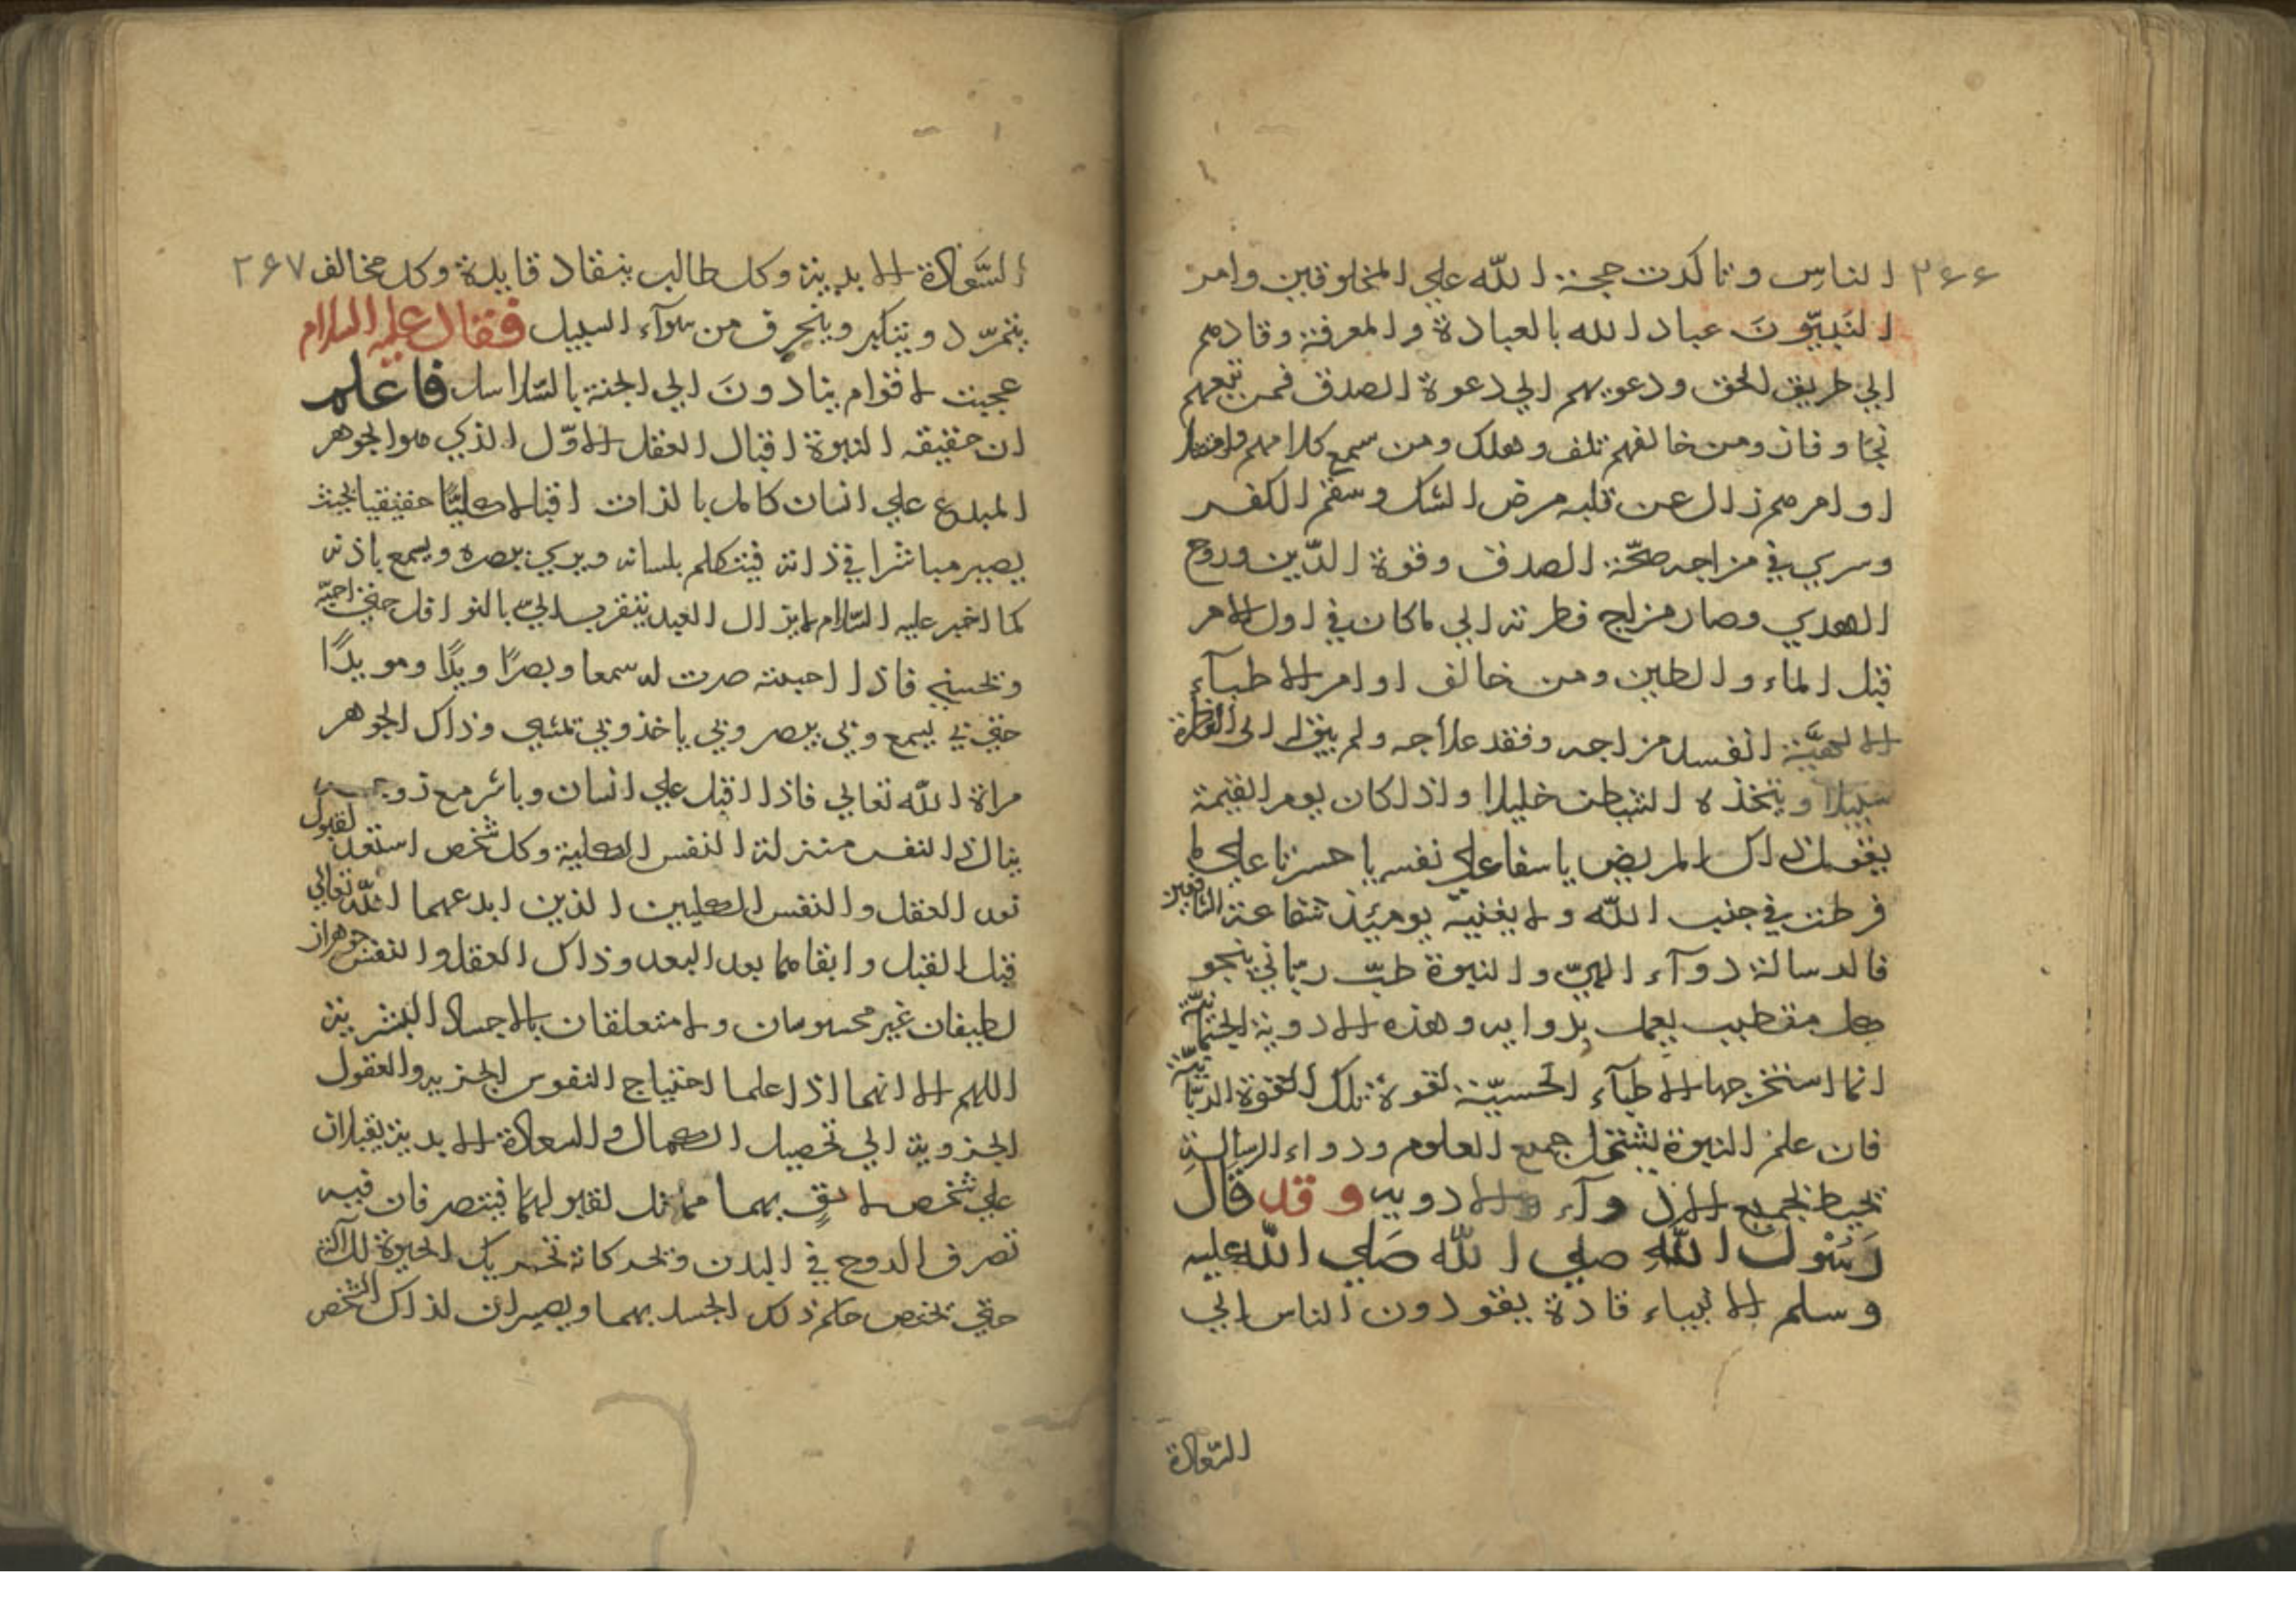 ٢٦٦ الناس وتاكدت حجة الله علي المخلوقين وامر
النَبيّونَ عباد الله بالعبادة والمعرفة وقادهم
الي طريق الحق ودعوهم الي دعوة الصدق فمن تبعهم
نجا وفاز ومن خالفهم تلف وهلك ومن سمع كلامهم
اوامرهم زال عن قلبه مرض الشك وسقم الكفر
وسري في مزاجه صحّة الصدق وقوة الدّين وروح
الهدي وصار مزاج فطرته الي ماكان في اول الامر
قبل الماء والطين ومن خالف اوامر الاطبآء
الالهيَّة انفسد مزاجه وفقد علاجه ولم يبق له الى
سبيلا ويتخذه الشيطن خليلا واذا كان يوم القيمة
يقول ذاك المريض ياسفا علي نفسه ياحسرتا علي ما
فرطت في جنب الله ولا يغنيه يومئذ شفاعة الشافعين
فالرسالة دوآء الهيّ والنبوة طبّ ربّاني ينجو
كل متطبب يعمل بدوايه وهذه الادوية الجسمانيّة
انما استخرجها الاطبآء الحسيّة لقوة تلك القوة الربّانيّة
فان علم النبوة يشتمل جميع العلوم ودواء الرسالة
تحيط بجميع الادوآء والادويه وقد قال
رَسُول الله صلي الله صَلي الله عليه
وسلم الانبياء قادة يقودون الناس الي
السّعادة
السَّعادة الابدية وكل طالب ينقاد قايده وكل مخالف ٢٦٧
يتمرّد ويتكبر وينحرف من سوآء السبيل فقال عليه السلام
عجبت لاقوام ينادونَ الي الجنة بالسّلاسل فاعلم
ان حقيقه النبوة اقبال العقل الاوّل الذي هو الجوهر
المبدع علي انسان كامل بالذات اقبالا كليّا حقيقيا بحيث
يصير مباشرا في ذاته فيتكلم بلسانه ويري ببصره ويسمع باذنه
كما اخبر عليه السّلام لايزال العبد يتقرب اليّ بالنوافل حتي احبّه
ويحبني فاذا احببته صرت له سمعا وبصرًا ويدًا ومويدًا
حتي بي يسمع وبي يبصر وبي ياخذ وبي تمشي وذاك الجوهر
مراة الله تعالي فاذا اقبل علي انسان وباشر مع روحه
ينال ذا النفس منزلة النفس الكلية وكل شخص استعد لقبول
نور العقل والنفس الكليين الذين ابدعهما الله تعالي
قبل القبل وابقاهما بعد البعد وذاك العقل والنفس جوهران
لطيفان غير محسوسان ولا متعلقان بالاجساد البشرية
اللهم الا انهما اذا علما احتياج النفوس الجزيه والعقول
الجزوية الي تحصيل الكمال والسعادة الابدية يقبلان
علي شخص لايق بهما مماثل لقبولهما فيتصرفان فيه
تصرف الروح في البدن وتحركاته تحريك الحيوة
حتي يختص حكم ذلك الجسد بهما ويصيران لذاك الشخص